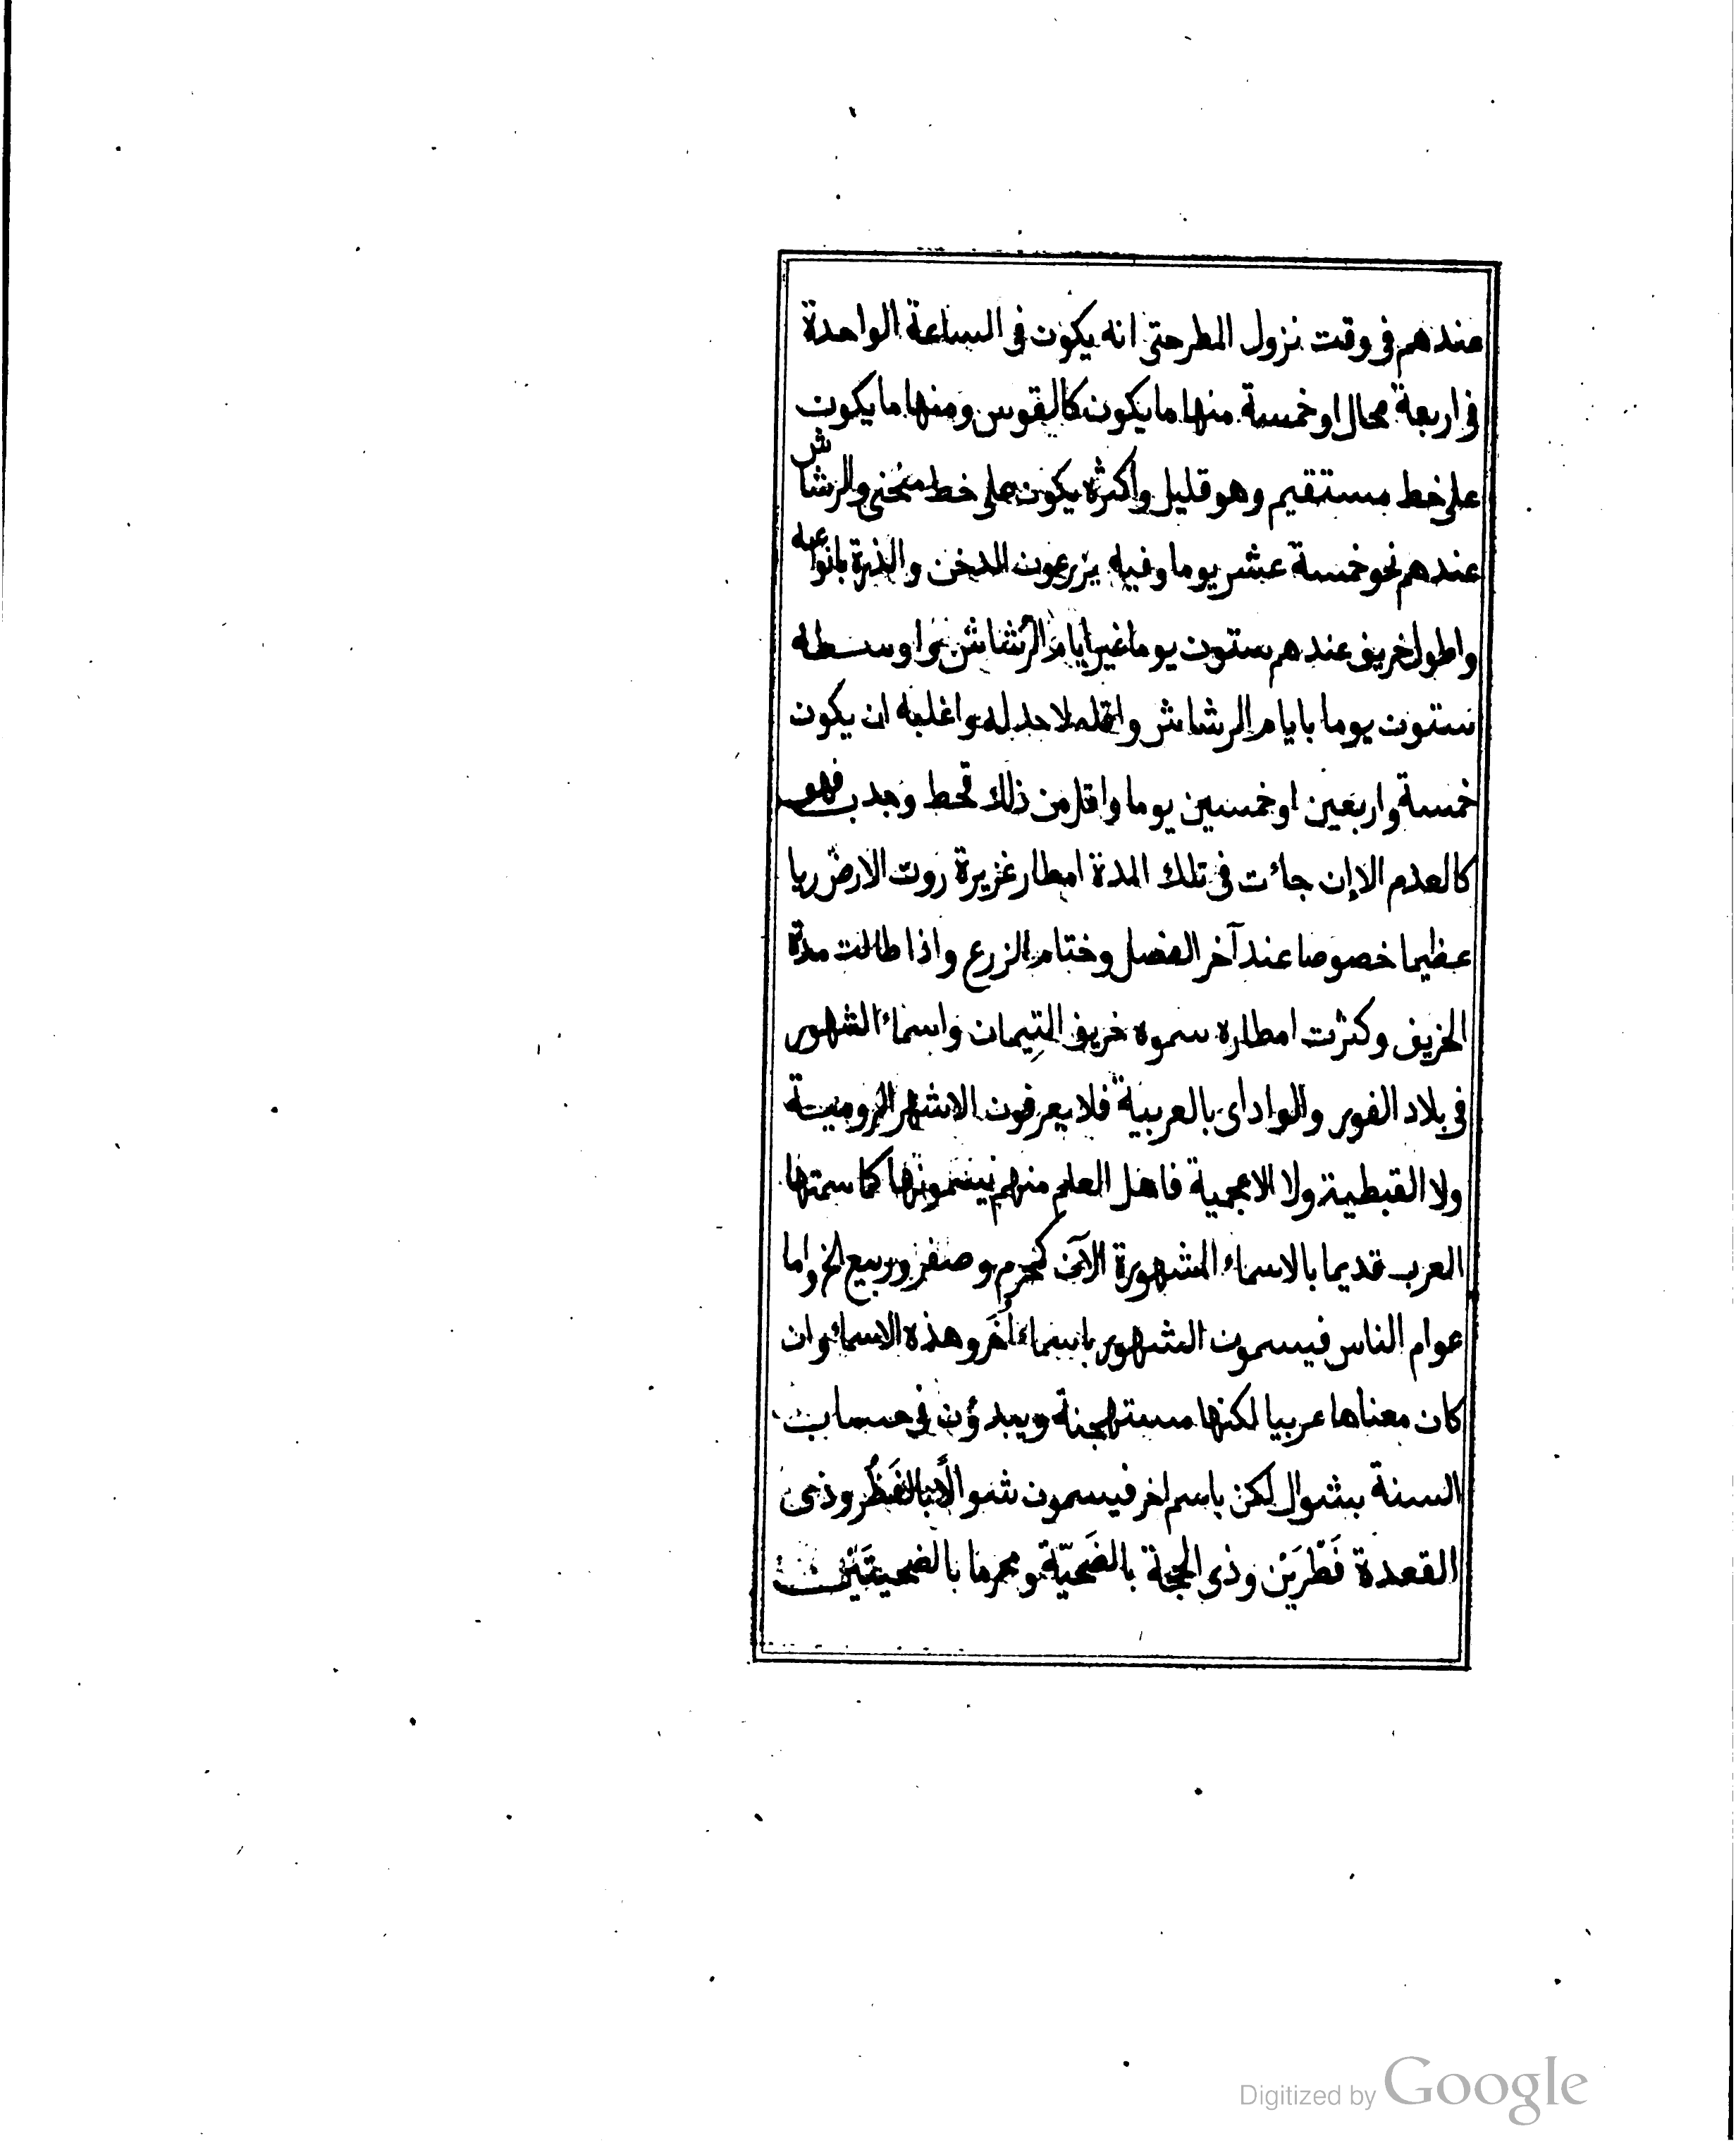 عندهم فى وقت نزول المطر حتى انه يكون فى الساعة الواحدة
فى اربعة محال او خمسة منها ما يكون كالقوس ومنها ما يكون
على خط مستقيم وهو قليل واكثره يكون على خط منحنى والرشاش
عندهم نحو خمسة عشر يوما وفيه يزرعون الدخن والذرة بانواعه
واطول خريف عندهم ستون يوما غير ايام الرشاش واوسطه
ستون يوما بايام الرشاش واقله لا حد له واغلبه ان يكون
خمسة واربعين او خمسين يوما واقل من ذلك قحط وجدب فهو
كالعدم الا إن جائت فى تلك المدة امطار غزيرة روت الارض ريا
عظيما خصوصا عند آخر الفصل وختام الزرع واذا طالت مدة
الخريف وكثرت امطاره سموه خريف التِيمان واسماء الشهور
فى بلاد الفور والواداى بالعربية فلا يعرفون الاشهر الرومية
ولا القبطية ولا الاعجمية فاهل العلم منهم يسمونها كما سمتها
العرب قديما بالاسماء المشهورة الآن كمحرم وصفر وربيع الخ واما
عوام الناس فيسمون الشهور باسماء أُخَر وهذه الاسماء وان
كان معناها عربيا لكنها مستهجنة ويبدؤن فى حساب
السنة بشوال لكن باسم اخر فيسمون شوالاً بالفَطُر وذى
القعدة فَطْرَيْن وذى الحجة بالضَحيّة ومحرما بالضحيتَيْن
Digitized by Google